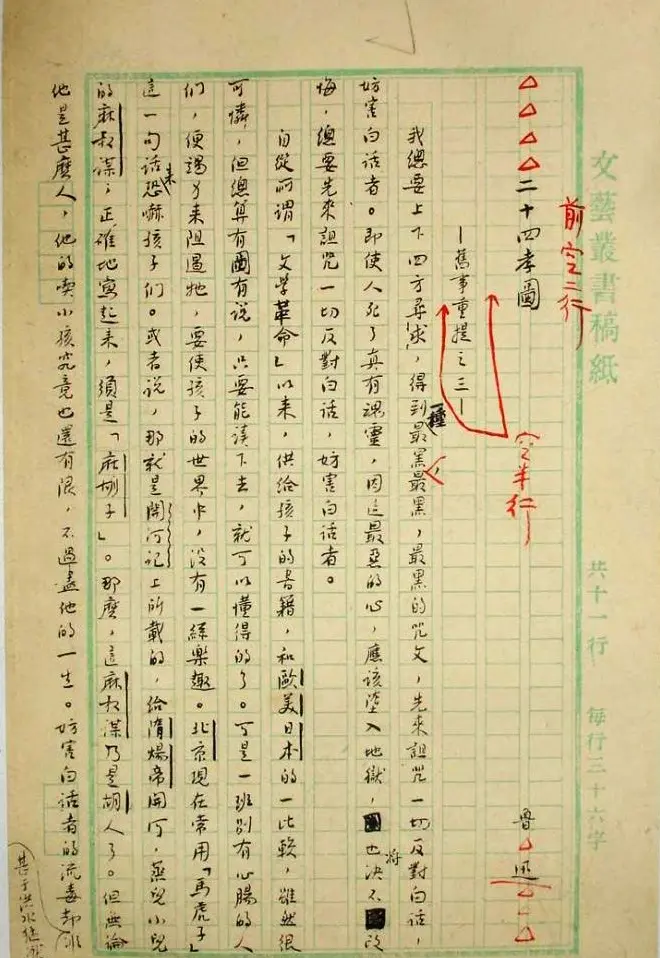 文藝叢書稿紙
共十一行　每行三十六字
前空二行
二十四孝圖
魯迅
空半行
—舊事重提之三—
我總要上下四方尋求，得到一種最黑最黑，最黑的咒文，先來詛咒一切反對白話，
妨害白話者。即使人死了真有魂靈，因這最惡的心，應該墮入地獄，也將決不改
悔，總要先來詛咒一切反對白話，妨害白話者。
自從所謂「文學革命」以來，供給孩子的書籍，和歐美日本的一比較，雖然很
可憐，但總算有圖有說，只要能讀下去，就可以懂得的了。可是一班別有心腸的人
們，便竭力來阻遏牠，要使孩子的世界中，沒有一絲樂趣。北京現在常用「馬虎子」
這一句話來恐嚇孩子們。或者說，那就是開河記上所載的，給隋煬帝開河，蒸兒小兒
的麻叔謀；正確地寫起來，須是「麻胡子」。那麼，這麻叔謀乃是胡人了。但無論
他是甚麼人，他的喫小孩究竟也還有限，不過盡他的一生。妨害白話者的流毒却
甚于洪水